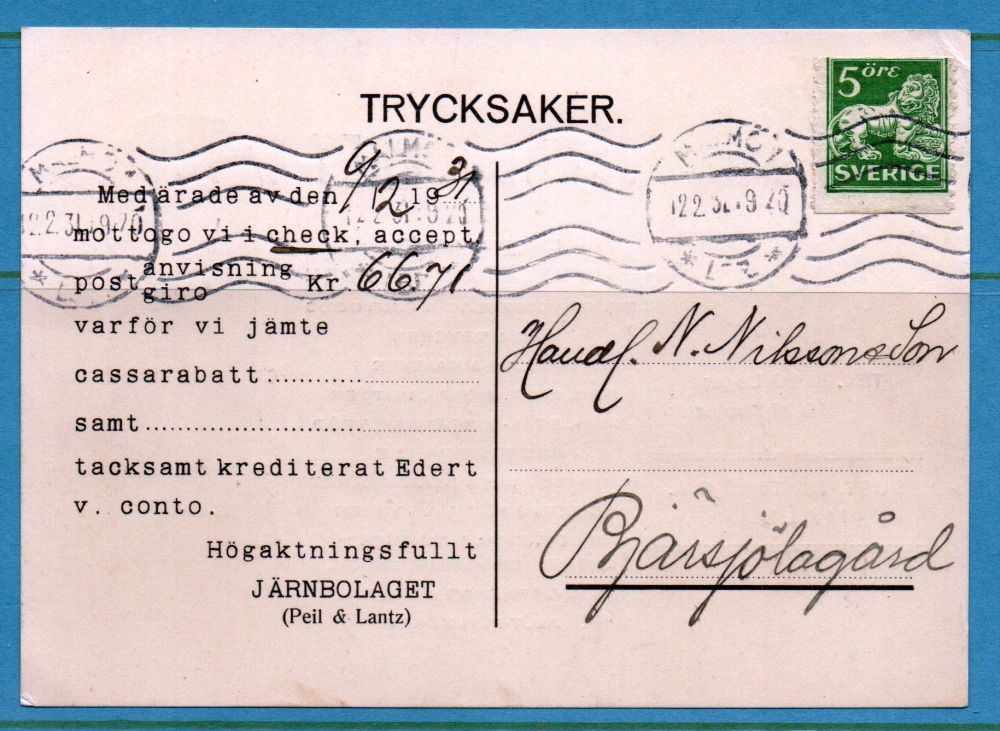 TRYCKSAKER.
5 öre
SVERIGE
MALMÖ 1
12.2.31.19.20
L.Br.
Med ärade av den 9/2 1931
mottogo vi i check, accept,
post anvisning
giro Kr. 66.71
varför vi jämte
cassarabatt
samt
tacksamt krediterat Edert
v. conto.
Högaktningsfullt
JÄRNBOLAGET
(Peil & Lantz)
Handl. N. Nilsson & Son
Bjärsjölagård